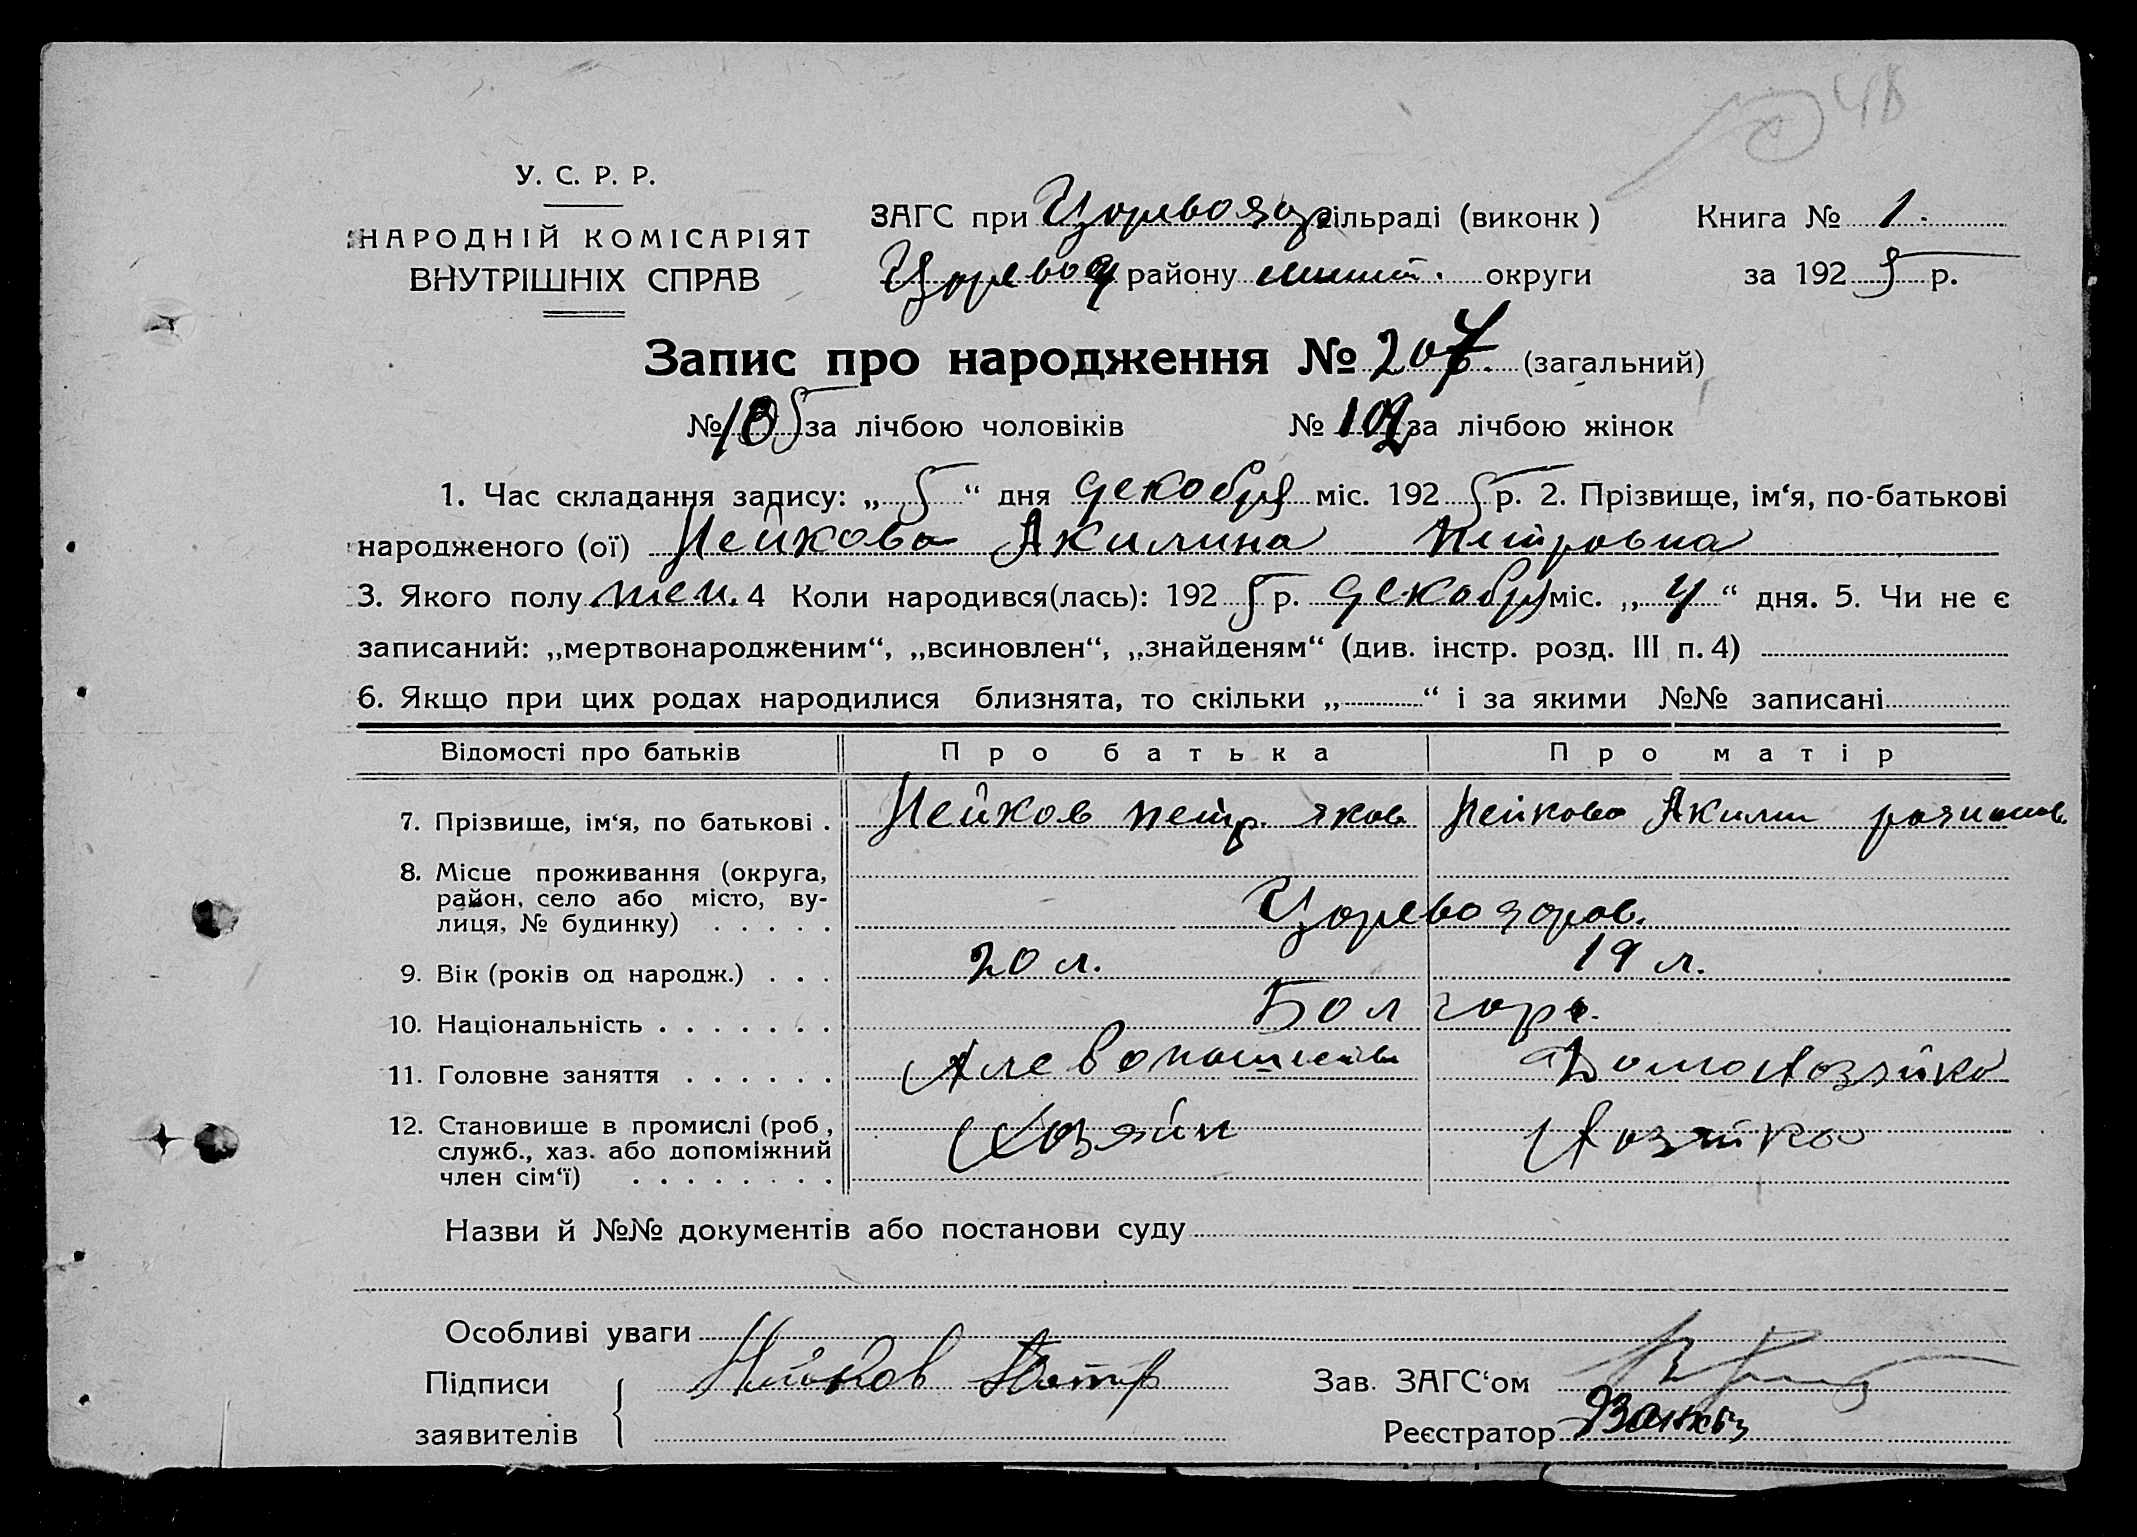 У. С. Р. Р.
НАРОДНІЙ КОМІСАРІЯТ
ВНУТРІШНІХ СПРАВ
ЗАГС при Царевода сільраді (виконк) Книга № 1.
Царевод району округи за 1925 р.
Запис про народження № 207. (загальний)
№ 105 за лічбою чоловіків № 102 за лічбою жінок
1. Час складання запису: „5“ дня декабря міс. 1925 р. 2. Прізвище, ім‘я, по-батькові
народженого (ої) Нейкова Акилина Петровна
3. Якого полу жен. 4 Коли народився(лась): 1925 р. декабря міс. „4“ дня. 5. Чи не є
записаний: „мертвонародженим“, „всиновлен“, „знайденям“ (див. інстр. розд. III п. 4)
6. Якщо при цих родах народилися близнята, то скільки „ “ і за якими №№ записані
Відомості про батьків Про батька Про матір
7. Прізвище, ім‘я, по батькові . Нейков Петр. Яков Нейкова Акилин
8. Місце проживання (округа,
район, село або місто, ву-
лиця, № будинку) . . . . .
9. Вік (років од народж.) . . . 20 л. 19 л.
10. Національність . . . . . . . Болгары.
11. Головне заняття . . . . . . Хлебопашество Домохозяйка
12. Становище в промислі (роб,
служб., хаз. або допоміжний
член сім‘ї) . . . . . . . . Хозяйн Хозяйка
Назви й №№ документів або постанови суду
Особливі уваги
Підписи Нейков Петр Зав. ЗАГС‘ом
заявителів Реєстратор